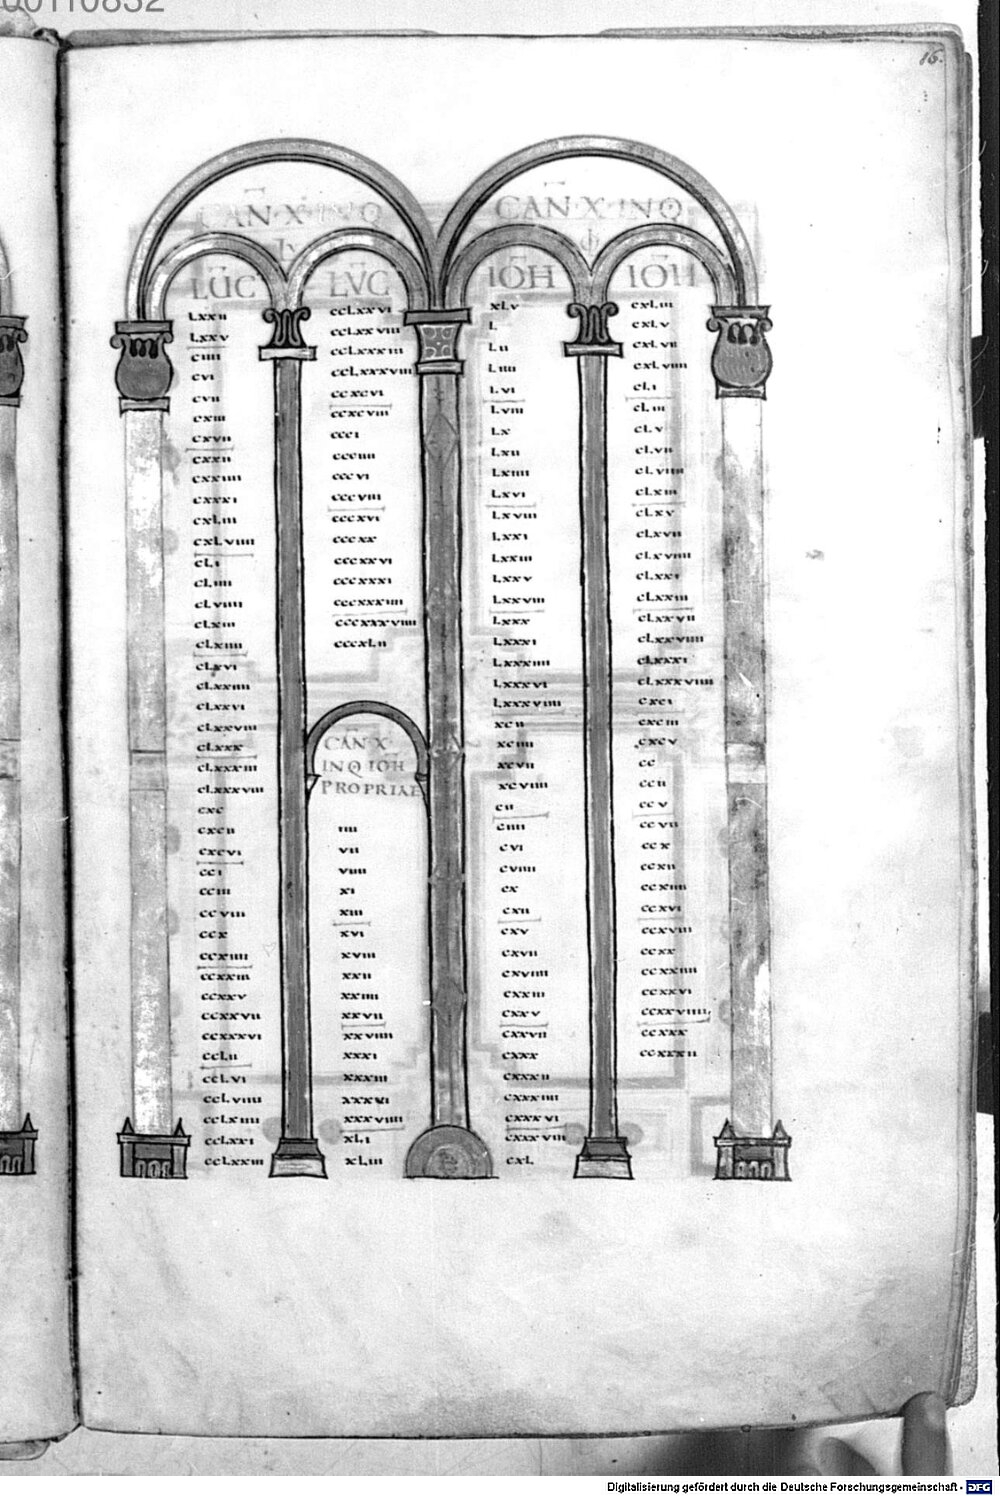 00110832
16.
CAN̄ X INQ
CAN̄ X INQ
LUC
LUC
IOH
IOH
Lxxii
Lxxv
ciiii
cvi
cvii
cxiii
cxvii
cxxii
cxxiiii
cxxxi
cxLiii
cxLviiii
cLi
cLiiii
cLviiii
cLxiii
cLxiiii
cLxvi
cLxxiiii
cLxxvi
cLxxviii
cLxxx
cLxxxiii
cLxxxviii
cxc
cxcii
cxcvi
cci
cciii
ccviii
ccx
ccxiiii
ccxxiii
ccxxv
ccxxvii
ccxxxvi
ccLii
ccLvi
ccLviiii
ccLxiiii
ccLxxi
ccLxxiii
ccLxxvi
ccLxxviii
ccLxxxiii
ccLxxxviii
ccxcvi
ccxcviii
ccci
ccciiii
cccvi
cccviii
cccxvi
cccxx
cccxxvi
cccxxxi
cccxxxiiii
cccxxxviiii
cccxLii
CAN̄ X
INQ IOH
PROPRIAE
iiii
vii
viiii
xi
xiii
xvi
xviii
xxii
xxiiii
xxvii
xxviiii
xxxi
xxxiii
xxxvi
xxxviiii
xLi
xLiii
xLv
L
Lii
Liiii
Lvi
Lviii
Lx
Lxii
Lxiiii
Lxvi
Lxviii
Lxxi
Lxxiii
Lxxv
Lxxviii
Lxxx
Lxxxi
Lxxxiiii
Lxxxvi
Lxxxviiii
xcii
xciiii
xcvii
xcviiii
cii
ciiii
cvi
cviiii
cx
cxii
cxv
cxvii
cxviiii
cxxiii
cxxv
cxxvii
cxxx
cxxxii
cxxxiiii
cxxxvi
cxxxviii
cxL
cxLiii
cxLv
cxLvii
cxLviiii
cLi
cLiii
cLv
cLvii
cLviiii
cLxiii
cLxv
cLxvii
cLxviiii
cLxxi
cLxxiii
cLxxvii
cLxxviiii
cLxxxi
cLxxxviiii
cxci
cxciii
cxcv
cc
ccii
ccv
ccvii
ccx
ccxii
ccxiiii
ccxvi
ccxviii
ccxx
ccxxiiii
ccxxvi
ccxxviiii
ccxxx
ccxxxii
Digitalisierung gefördert durch die Deutsche Forschungsgemeinschaft - DFG